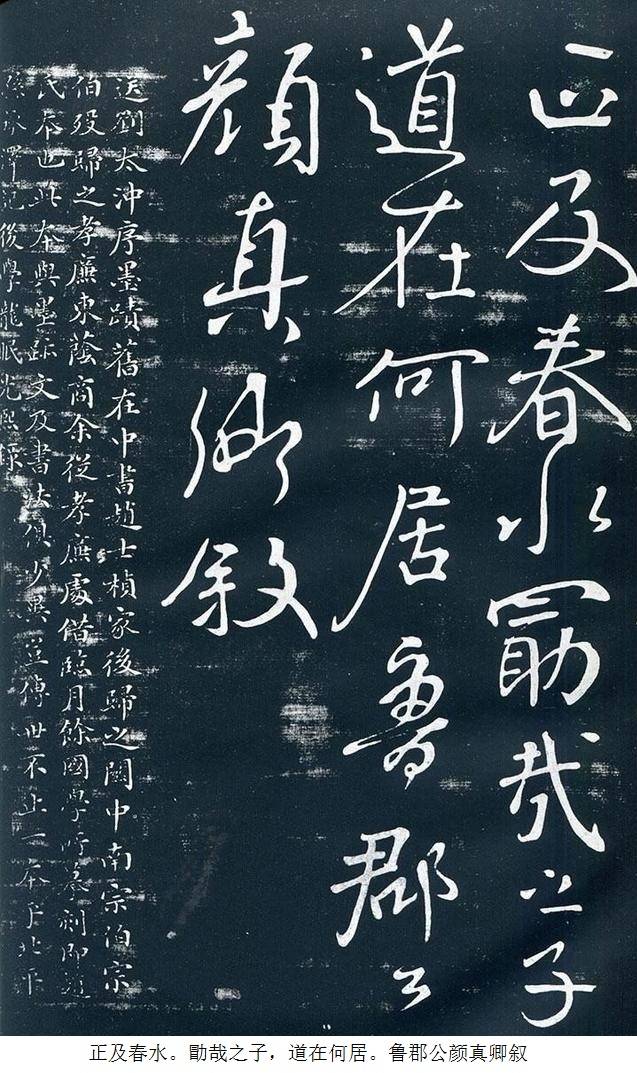 正及春水勖哉之子
道在何居魯郡公
顔真卿敘
送劉太沖序墨蹟舊在中書趙士楨家後歸之關中南宗伯宗
伯歿歸之孝廉東蔭商余從孝廉處借臨月餘國學所摹刻即
氏本也此本與墨跡文及書法俱少異豈傳世不止一本乎北平
孫承澤記後學龍眠光
正及春水。勖哉之子，道在何居。鲁郡公颜真卿叙